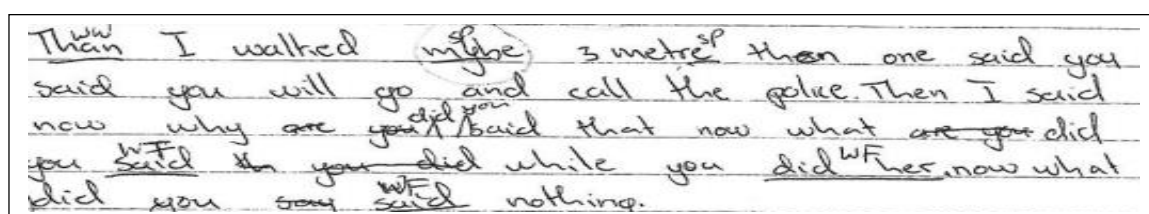 Than ww I walked mybe sp 3 metre sp then one said you
said you will go and call the police. Then I said
now why are you did you said that now what are you did
you said WF you did while you did her WF, now what
did you say said WF nothing.